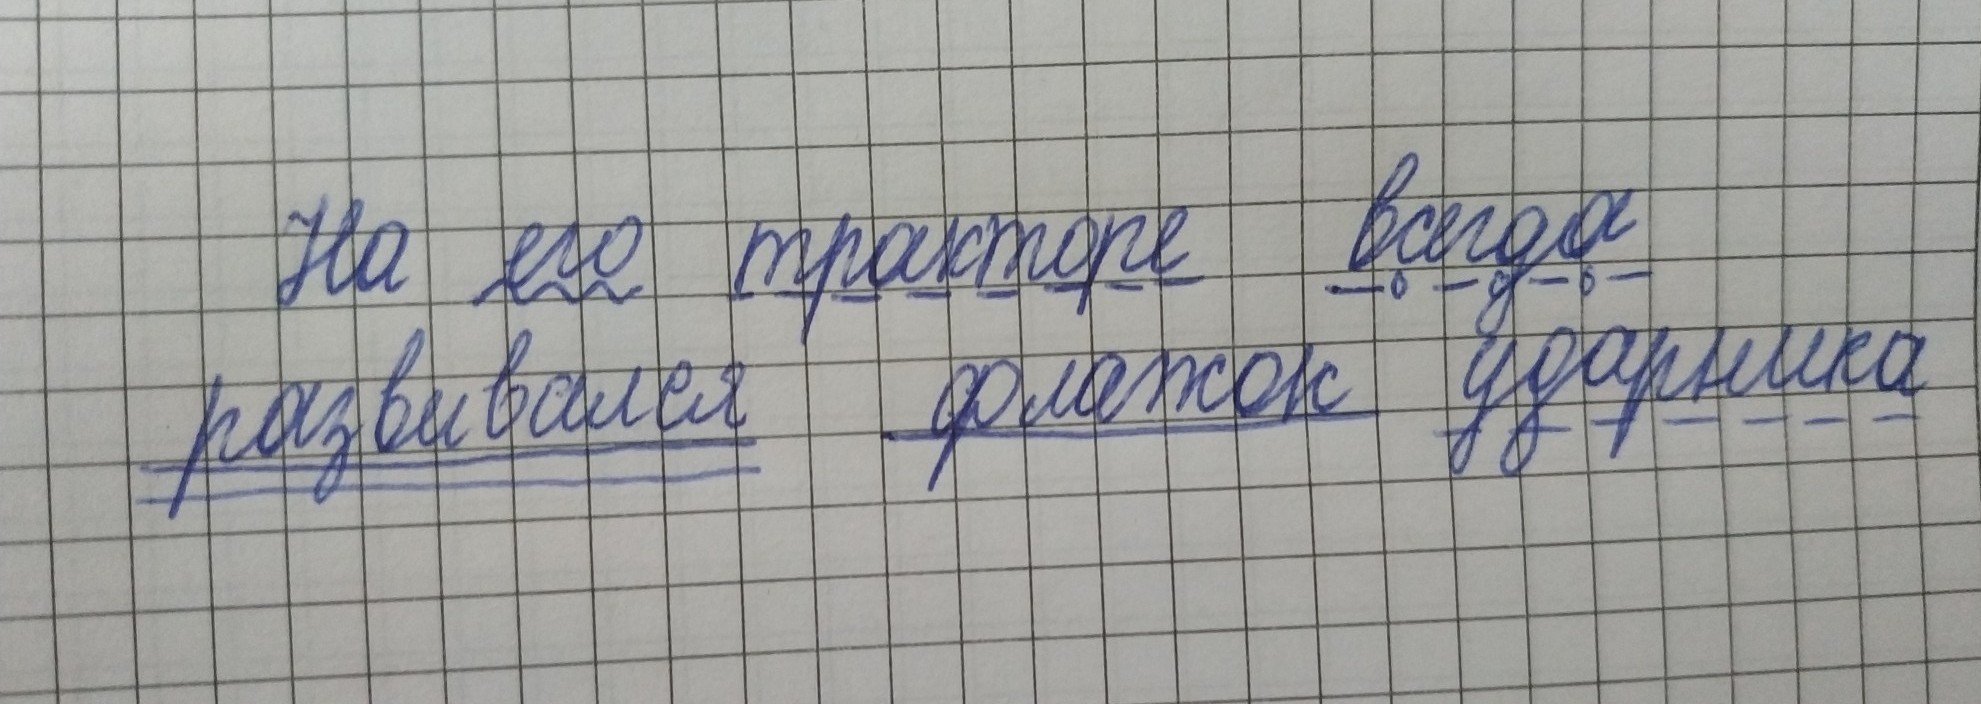 На его тракторе всегда
развивался фолажок ударника